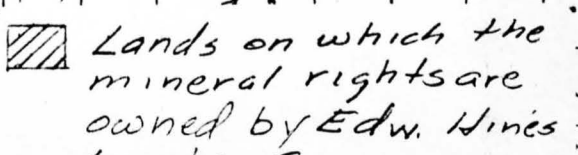 Lands on which the
mineral rights are
owned by Edw. Hines